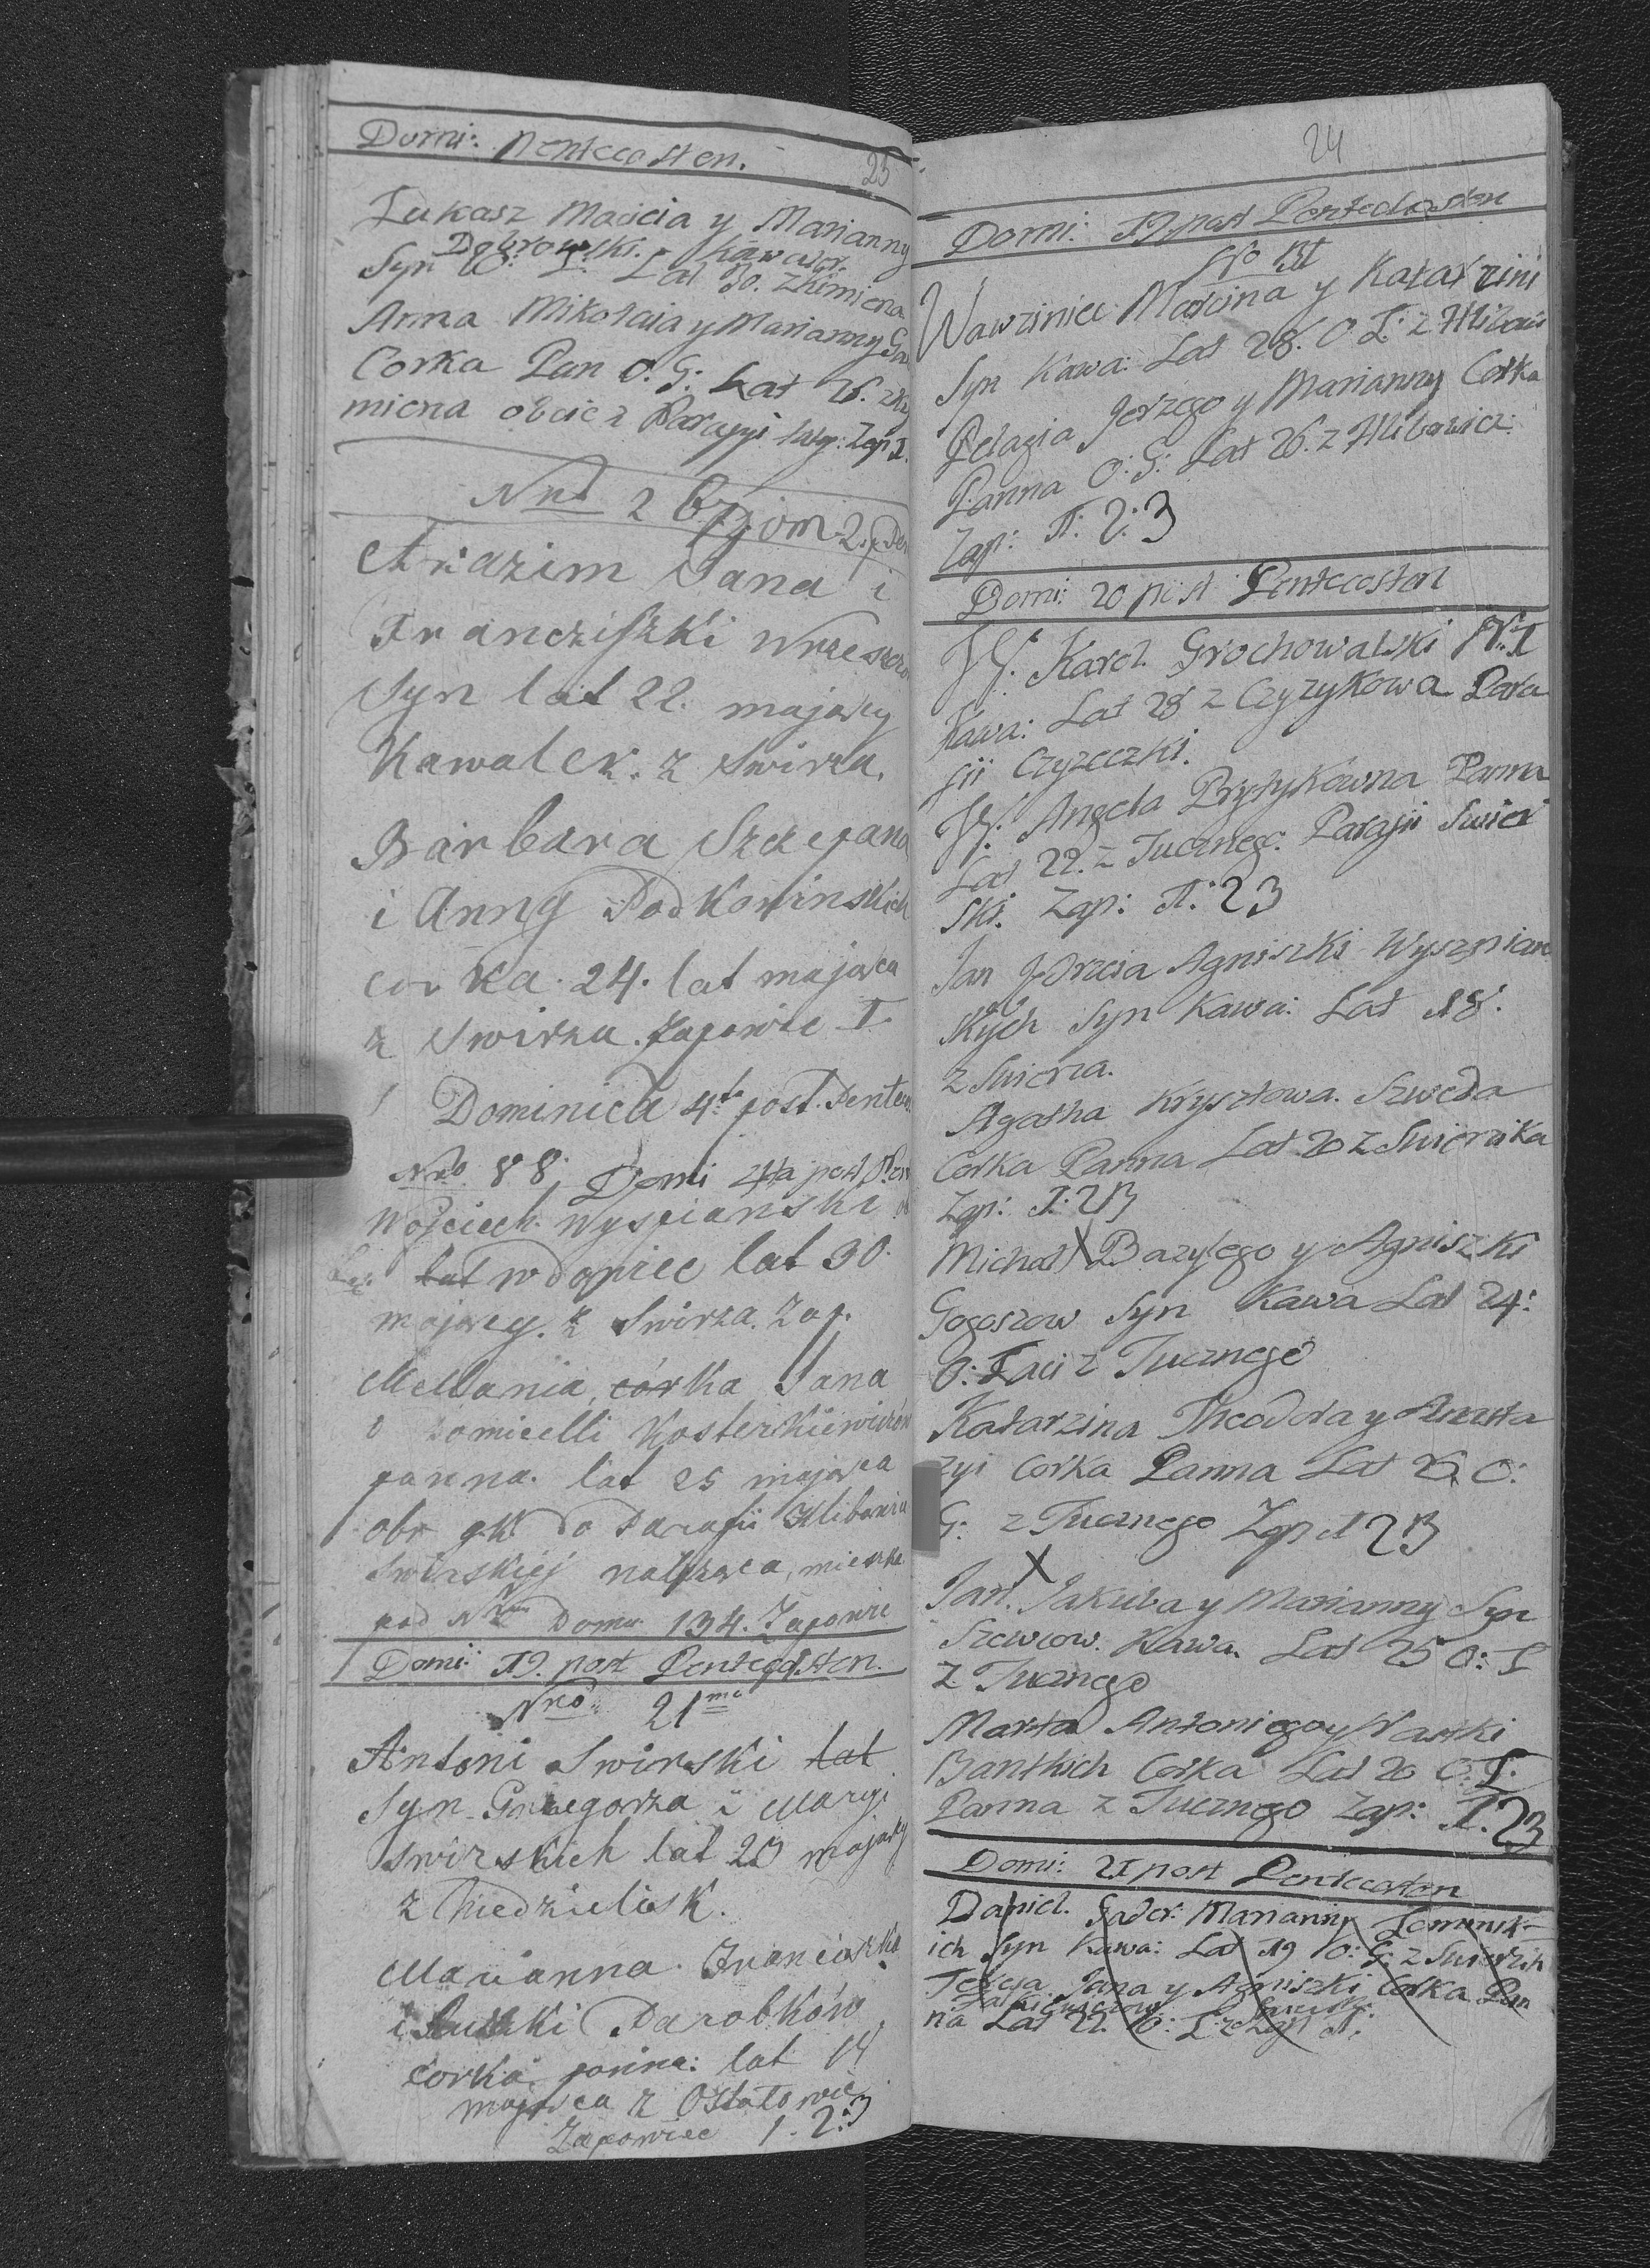 Domi: Pentecosten.
23
Łukasz Macieia y Marianny
Dobrowski. Kawaler.
Syn O: Ł. Lat 30. z Kimiena
Anna Mikołaia y Marianny
Corka Pan O. G: Lat 26. z
miena obcie z Parafyi
Nro 2 Dom 2.
Jana i
Franciszki
Syn lat 22. maiący
Kawaler. z Swirza.
Barbara Szczepana
i Anny Podkowinskich
corka. 24. lat maiąca
z Swirza. Zapowie I.
Dominica 4ta post. Pentec.
Nro. 88. Domi 4ta post Pen
Wojciech Wyspianski
lat wdowiec lat 30.
mający. z Swirza. Zap.
Mellania, córka Jana
Kosterkiewiczów
panna. lat 25 mająca
obr gk do Parafii Hlibowic
Swirskiej należąca, mieszka
pod Nrm Domu 134. Zapowie
Domi: 19. post Pentecosten.
Nro 21
Antoni Swirski lat
Syn Grzegorza i Mary.
Swirskich lat 23 mający
z Niedzielisk.
Marianna. Franciszka
i Parobków
corka, panna: lat 14
mająca z Ostałowic
Zapowiec 1. 2. 3
24
Domi: 19. post Pentecosten
Nro
Wawrziniec Marcina y Katarzini
Syn Kawa: Lat 28. O Ł: z Hlibowic
Pelagia Jerzego y Marianny Corka
Panna O: G: Lat 26. z Hlibowicz:
Zap: 1: 2: 3
Domi: 20 post Pentecosten
W. Karol. Grochowalski N: 1
Kawa: Lat 28 z Czyzykowa Para
fii Czyzeczki.
W. Angela Przytykowna Panna
Lat 22. z Tucznego. Parafii Swier
ski. Zap: 1: 2 3
Jan Jędrzeia Agniszki Wyszpian
skych Syn Kawa: Lat 18.
z Swierza.
Agatha Krysztowa. Szweda
Corka Panna Lat 20 z Swierzika
Zap: 1: 2 3
Michał Bazylego y Agniszki
Gogoszow Syn Kawa Lat 24:
O: Łaci z Tucznego
Katarzina Theodora y Anasta
zyi Corka Panna Lat 26 O:
G: z Tucznego Zap 1 2 3
Jan. Jakuba y Marianny Syn
Szewcow. Kawa. Lat 25 O: Ł
z Tucznego
Marta Antoniego y Nastki
Bantkich Corka Lat 20 O: Ł.
Panna z Tucznego Zap: 1. 2 3
Domi: 21 post Pentecosten
Daniel. Marianny
ich Syn Kawa: Lat 19 O: G: z Swierzik
Tekcja Jana y Agniszki Corka Pan
na Lat 22. O: Ł: z Zap 1: